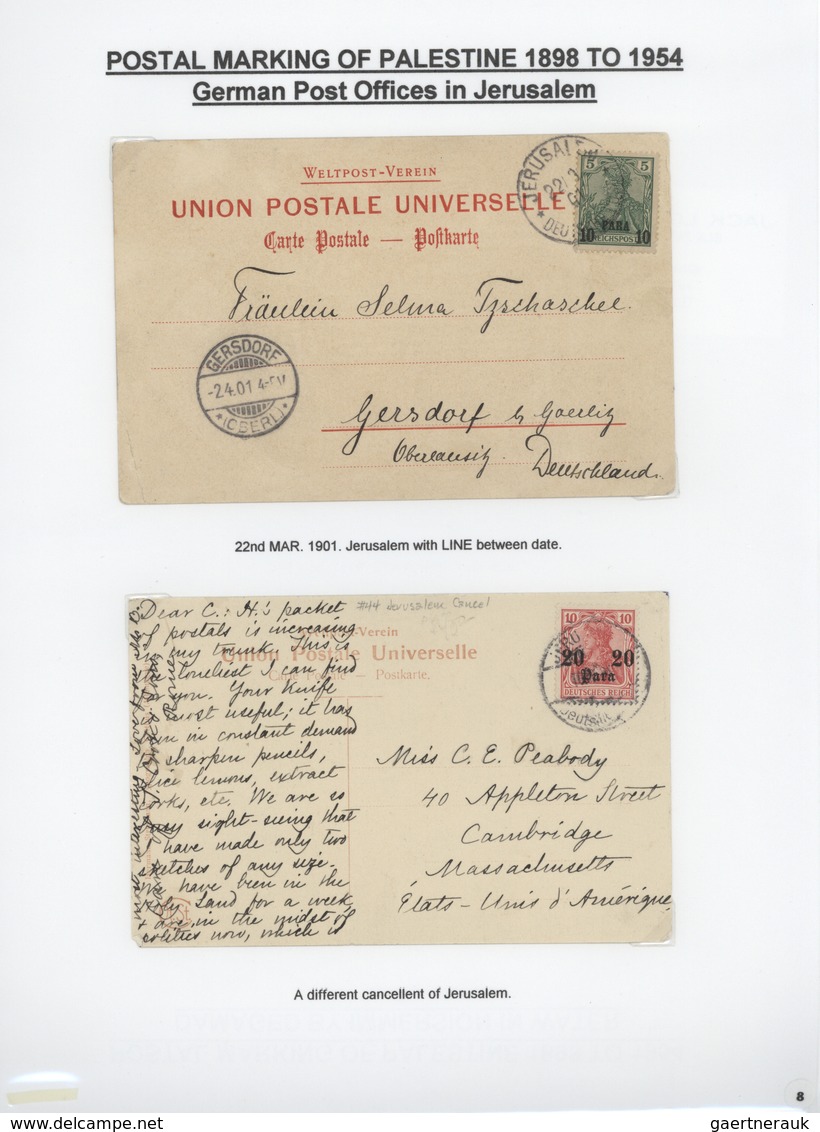 POSTAL MARKING OF PALESTINE 1898 TO 1954
German Post Offices in Jerusalem
WELTPOST-VEREIN
UNION POSTALE UNIVERSELLE
Carte Postale — Postkarte
JERUSALE
22/3
DEU
5 5
PARA
10 10
REICHSPOST
Fräulein Selma Tzschaschel.
GERSDORF
-2.4.01 4-5V
* (OBERL) *
Gersdorf b/ Goerlitz
Oberlausitz.
Deutschland.
22nd MAR. 1901. Jerusalem with LINE between date.
#44 Jerusalem Cancel
Dear C.: H.'s packet
of postals is increasing
in my trunk. This is
the loneliest I can find
for you. Your knife
is most useful; it has
been in constant demand
to sharpen pencils,
slice lemons, extract
corks, etc. We are so
busy sight-seeing that
I have made only two
sketches of any size.
We have been in the
Holy Land for a week
+ are in the midst of
politics now, which is
most interesting. Love from
Weltpost-Verein
Union Postale Universelle
Carte Postale — Postkarte.
10 10
20 20
Para
DEUTSCHES REICH
JERU
Deutsche
Miss C. E. Peabody
40 Appleton Street
Cambridge
Massachusetts
États-Unis d'Amérique
A different cancellent of Jerusalem.
8
gaertnerauk
DELCAMPE.NET